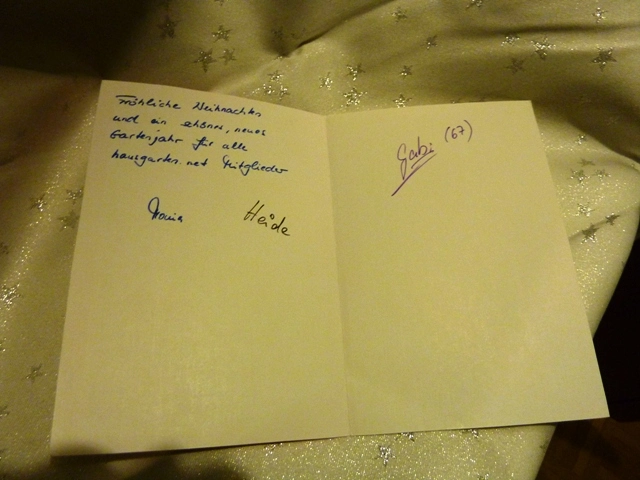 Fröhliche Weihnachten
und ein schönes, neues
Gartenjahr für alle
hausgarten.net Mitglieder
Heide
Gabi (67)